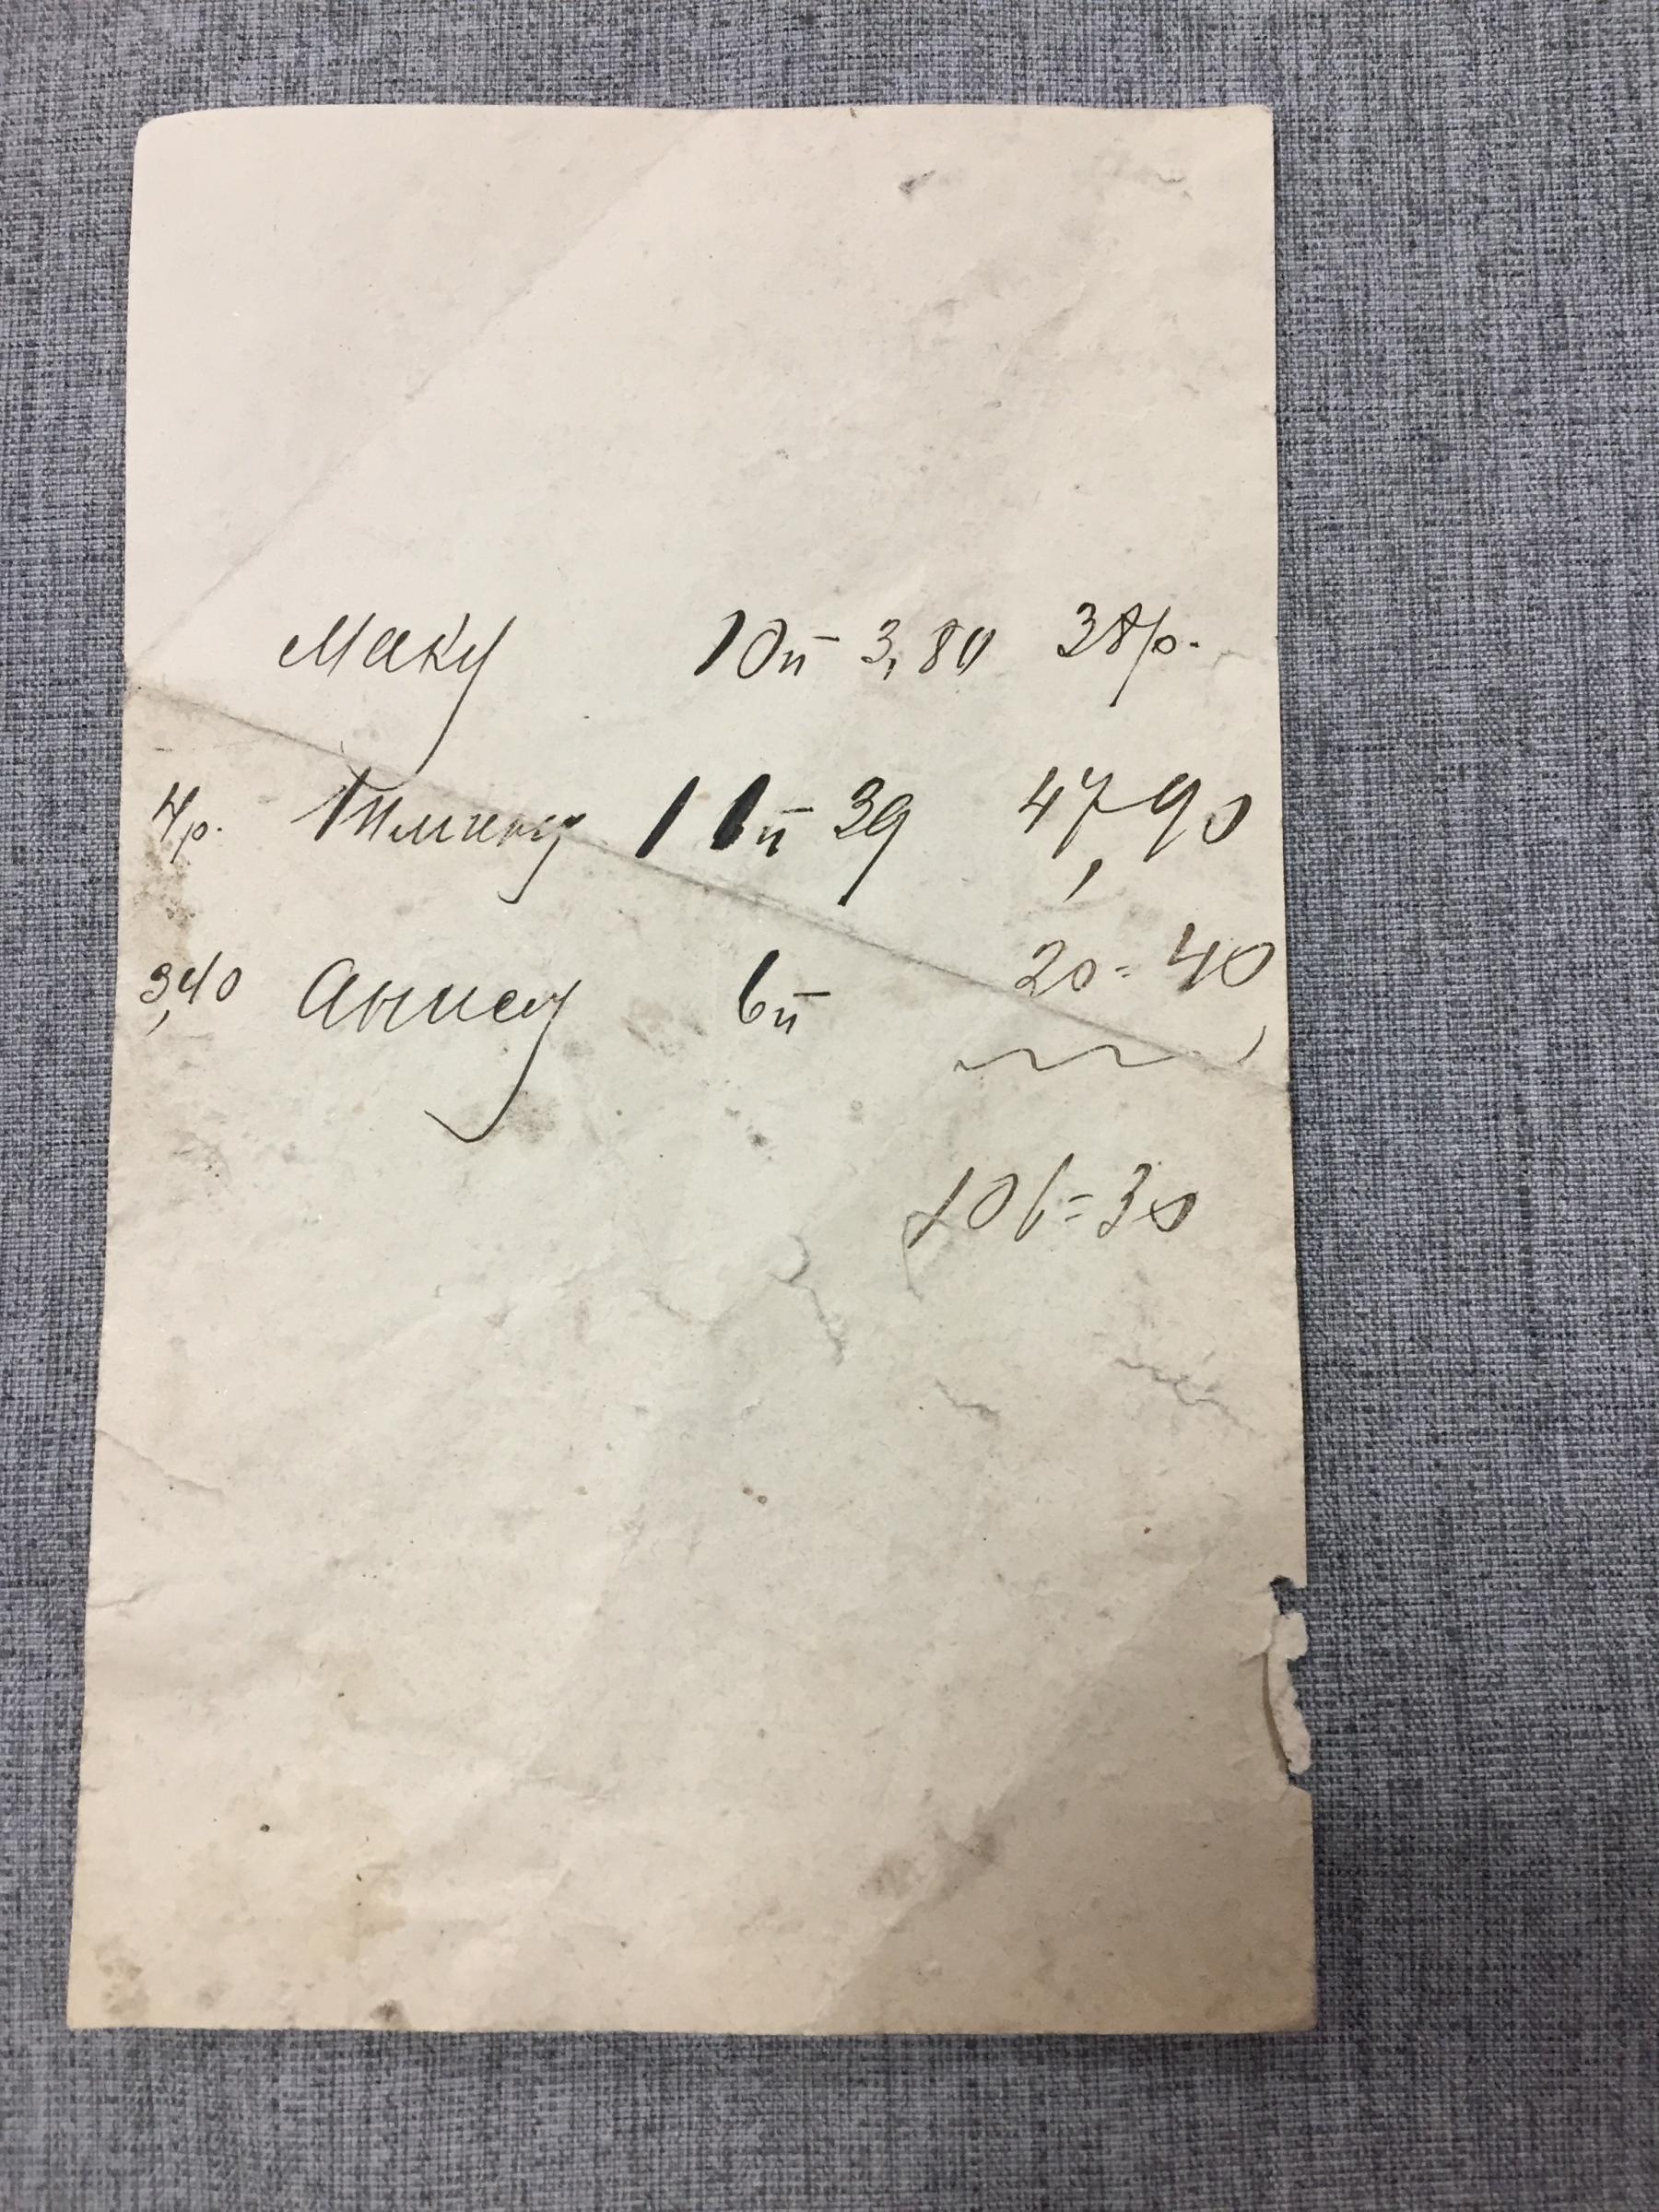 Маку 10п 3,80 38р.
4р. Тмину 11п 39 47,90
3,40 Анису 6п 20=40
106=30